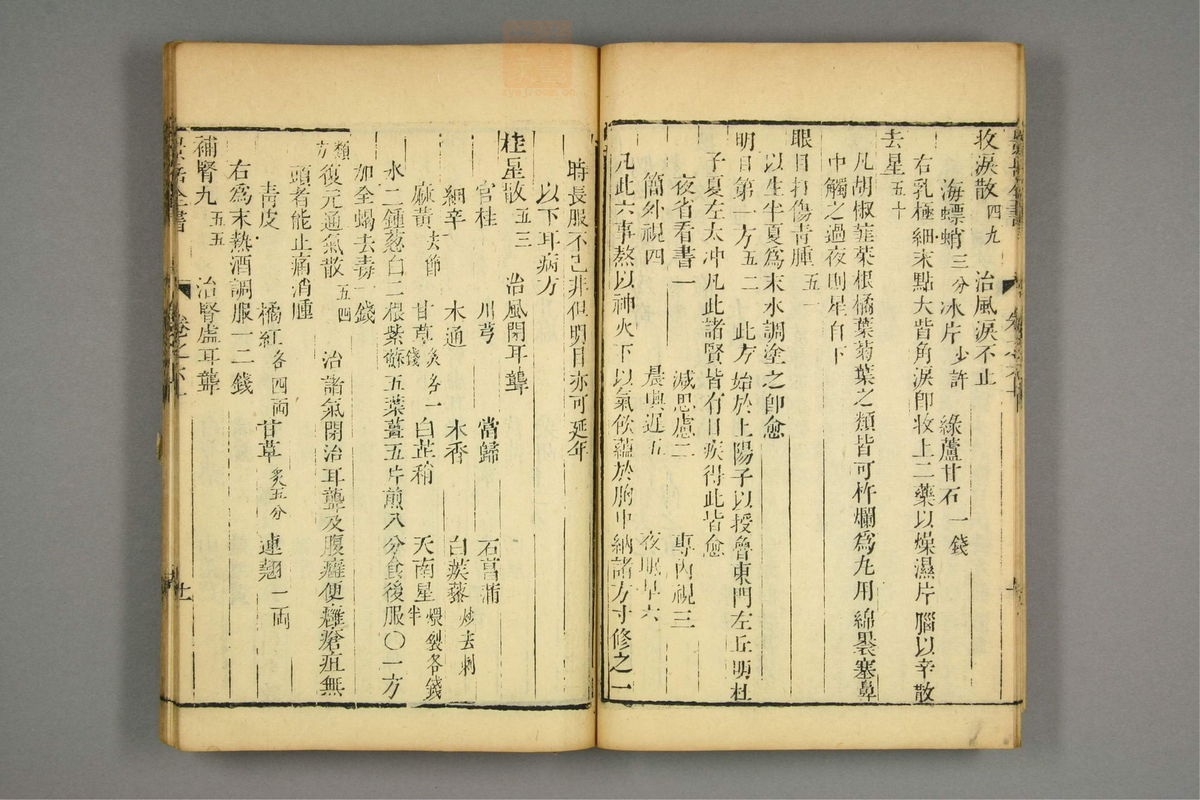 收淚散 四九 治風淚不止
海螵蛸 三分 冰片 少許 綠蘆甘石 一錢
右乳極細末點大眥角淚卽收上二藥以燥濕片腦以辛散
去星 五十
凡胡椒韮菜根橘葉菊葉之類皆可杵爛爲丸用綿裹塞鼻
中觸之過夜則星自下
眼目打傷青腫 五一
以生半夏爲末水調塗之卽愈
明目第一方 五二 此方始於上陽子以授魯東門左丘明杜
子夏左太冲凡此諸賢皆有目疾得此皆愈
夜省看書一 減思慮二 專內視三
簡外視四 晨興近五 夜眠早六
凡此六事熬以神火下以氣飲蘊於胸中納諸方寸修之一
時長服不已非但明目亦可延年
以下耳病方
桂星散 五三 治風閉耳聾
官桂 川芎 當歸 石菖蒲
細辛 木通 木香 白蒺藜 炒去刺
麻黃 去節 甘草 炙各一錢 白芷稍 天南星 煨裂各錢半
水二鍾葱白二根紫蘇五葉薑五片煎八分食後服○一方
加全蝎去毒一錢
類方 復元通氣散 五四 治諸氣閉治耳聾及腹癰便癰瘡疽無
頭者能止痛消腫
青皮 橘紅 各四兩 甘草 炙五分 連翹 一兩
右爲末熱酒調服一二錢
補腎丸 五五 治腎虛耳聾